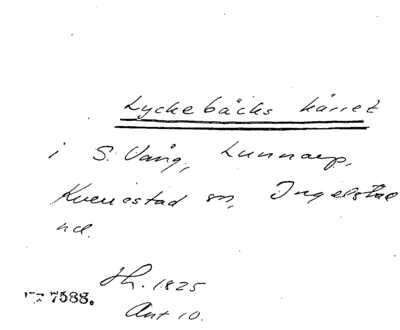 Lyckebäcks kärret
i S. Vång, Lunnarp,
Kverrestad sn, Ingelstad
hd.
Sk. 1825
7588. Akt 10.